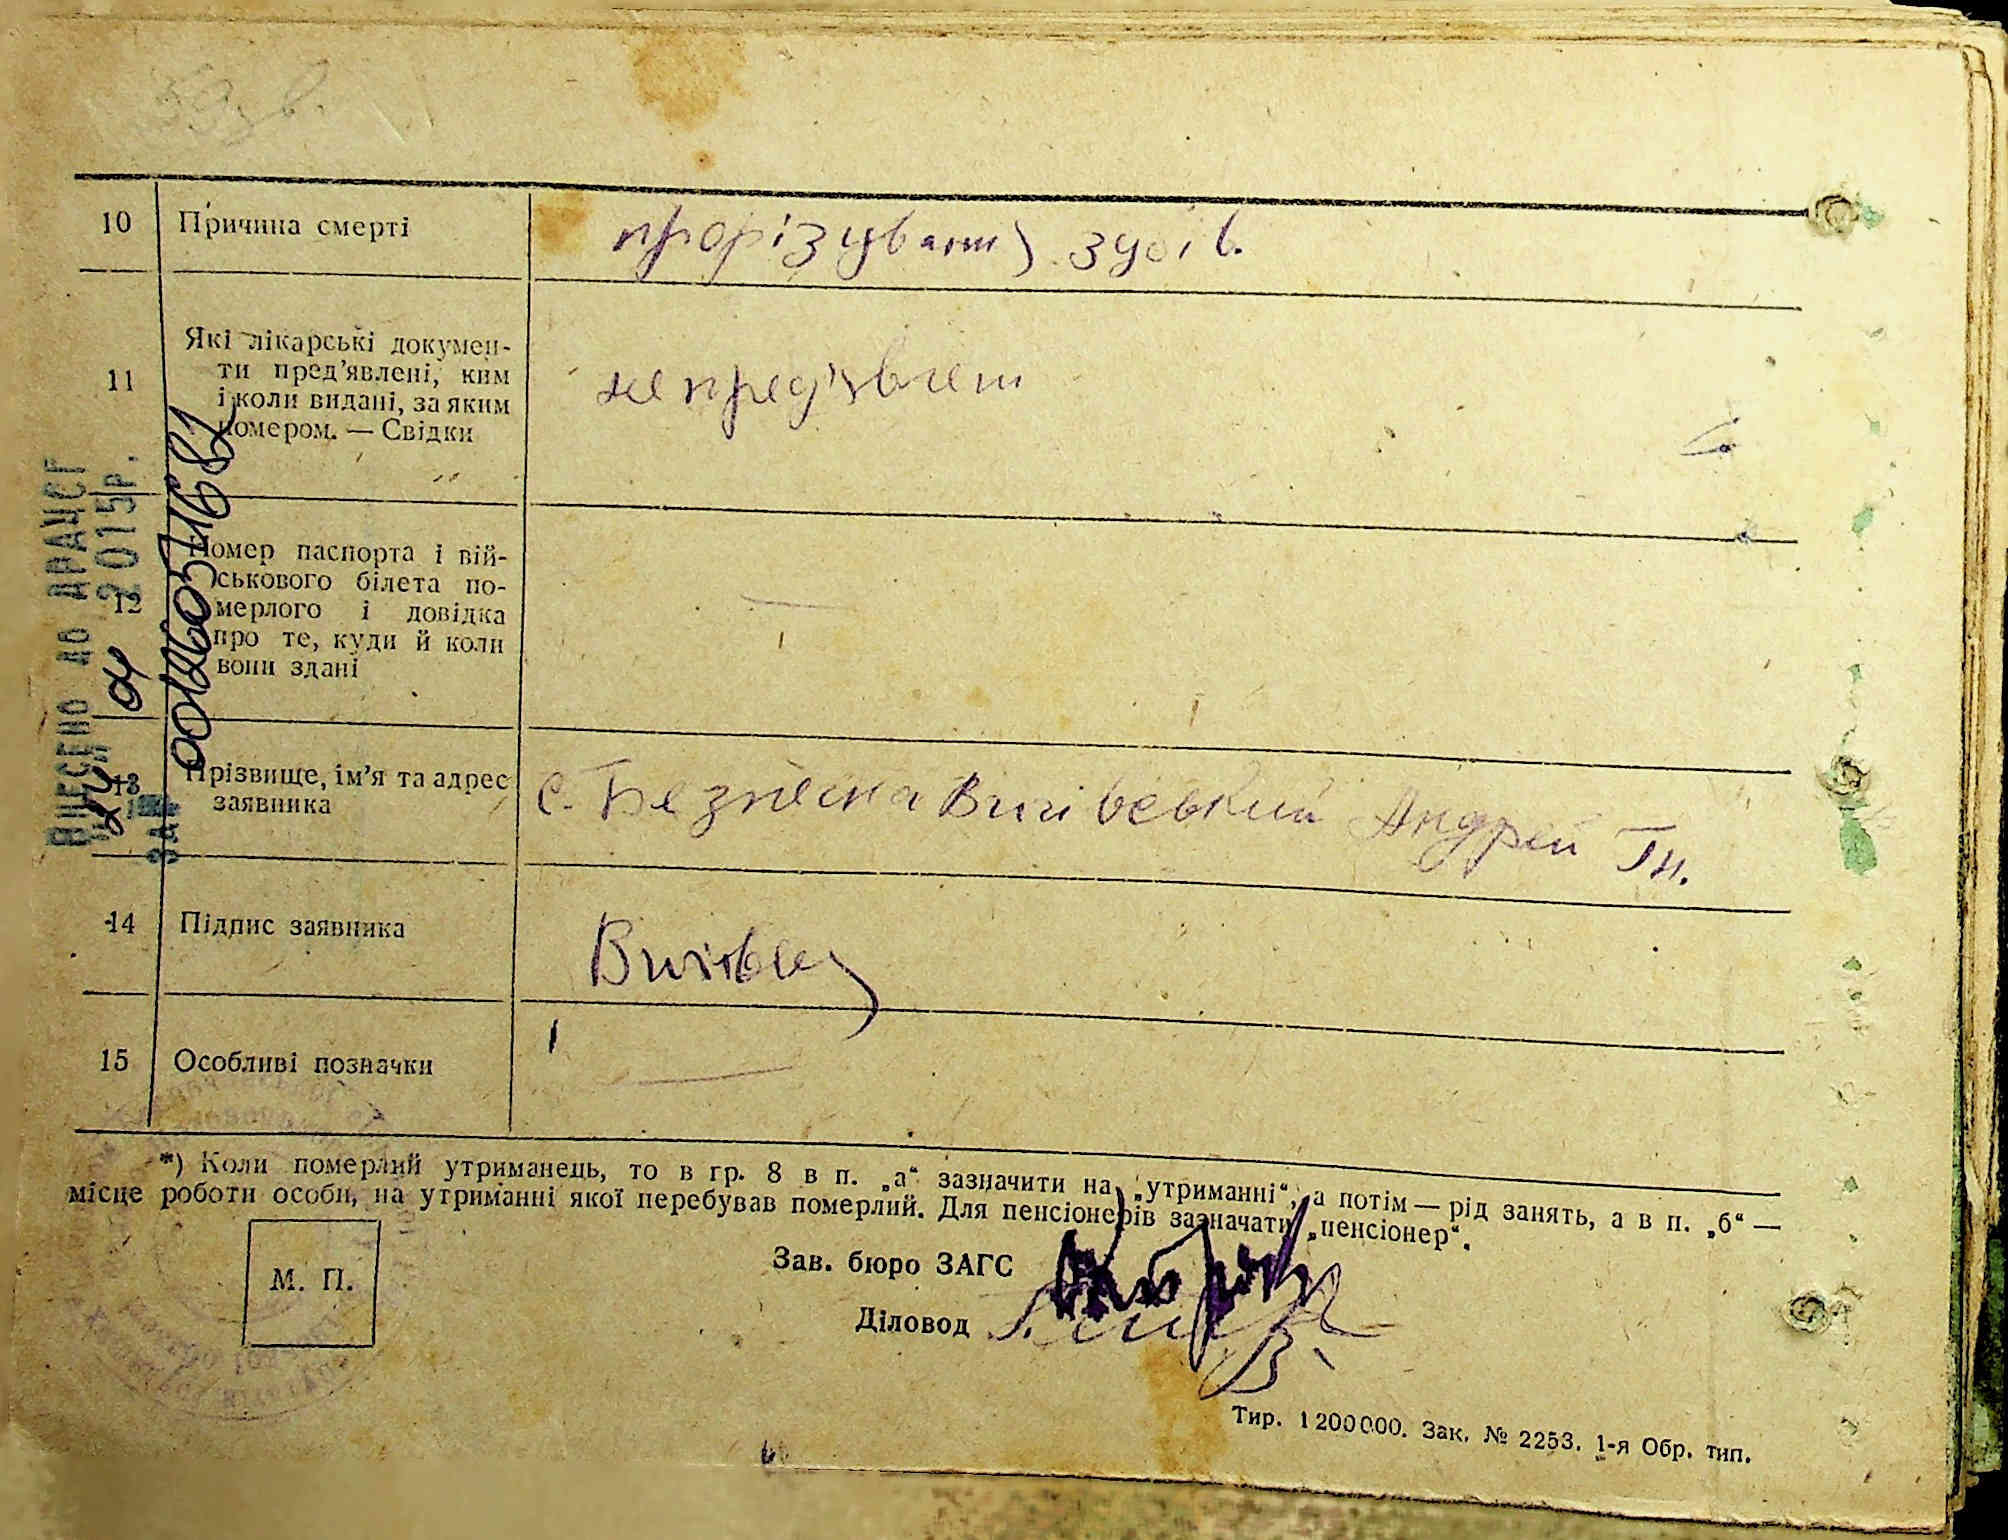 59 зв.
10 Причина смерті прорізувания зубів.
11 Які лікарські докумен-
ти пред'явлені, ким
і коли видані, за яким
номером. — Свідки
не пред'явлені
12 Номер паспорта і вій-
ськового білета по-
мерлого і довідка
про те, куди й коли
вони здані
—
13 Прізвище, ім'я та адрес
заявника
с. Безпечна Вигівський Андрей Гн.
14 Підпис заявника
15 Особливі позначки —
ВНЕСЕНО ДО ДРАЦСГ
04 2015р.
ЗА №
001460571681
*) Коли померлий утриманець, то в гр. 8 в п. „а“ зазначити на „утриманні“, а потім — рід занять, а в п. „б“ —
місце роботи особи, на утриманні якої перебував померлий. Для пенсіонерів зазначати „пенсіонер“.
М. П.
Зав. бюро ЗАГС
Діловод
Тир. 1200000. Зак. № 2253. 1-я Обр. тип.